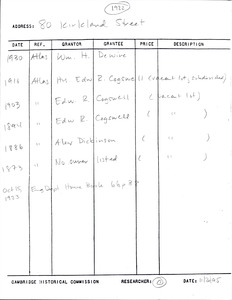 1922
ADDRESS: 80 Kirkland Street
DATE REF. GRANTOR GRANTEE PRICE DESCRIPTION
1930 Atlas Wm. H. Dewire
1916 Atlas Edw. R. Cogswell (vacant lot,
1903 " Edw. R. Cogswell (vacant lot)
1894 " Edw. R. Cogswell ( " )
1886 " Alex Dickinson ( " )
1873 " No owner listed ( " )
Oct 15 1922
CAMBRIDGE HISTORICAL COMMISSION RESEARCHER: DATE: